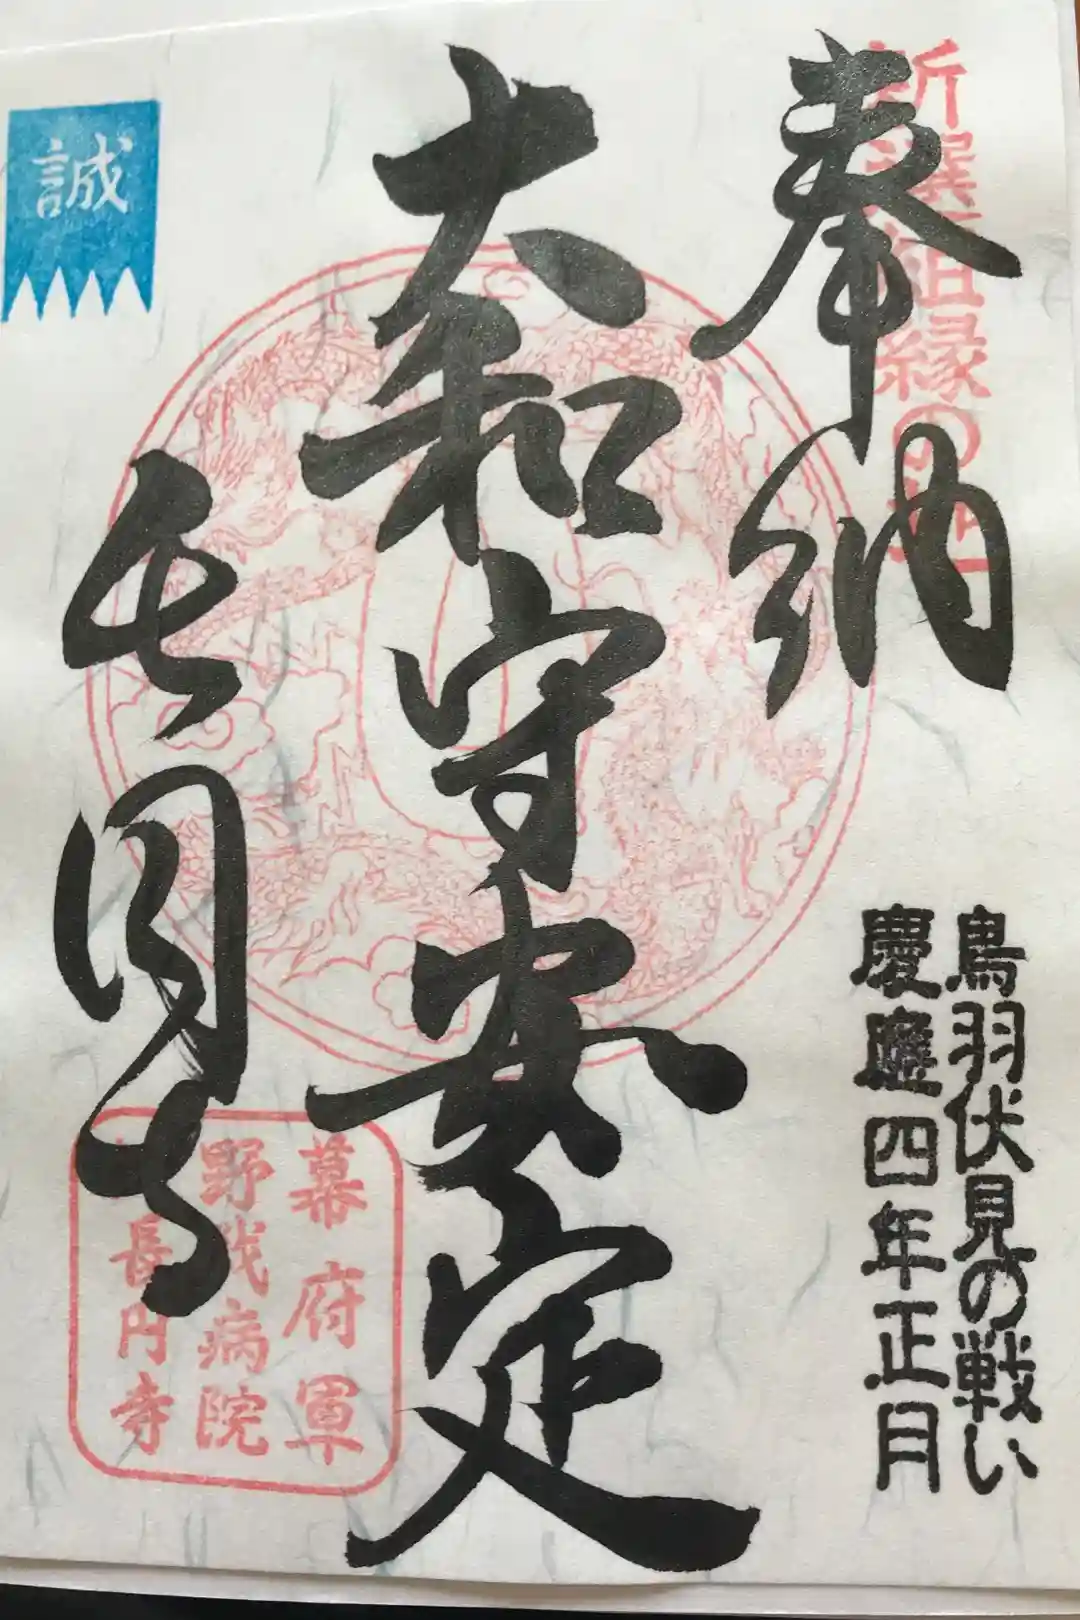 新選組縁の地
奉納
鳥羽伏見の戦い
慶應四年正月
大和守安定
長円寺
誠
幕府軍
野戦病院
長円寺